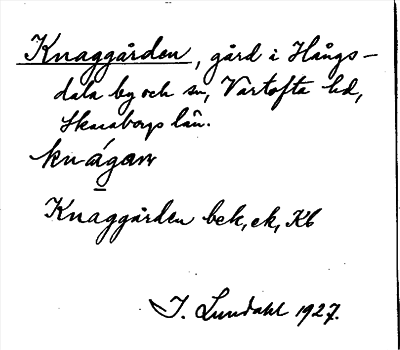 Knaggården, gård i Hångs-
dala by och sn, Vartofta hd,
Skaraborgs län.
knágan
Knaggården bek, ek, Kb
J. Lundahl 1927.